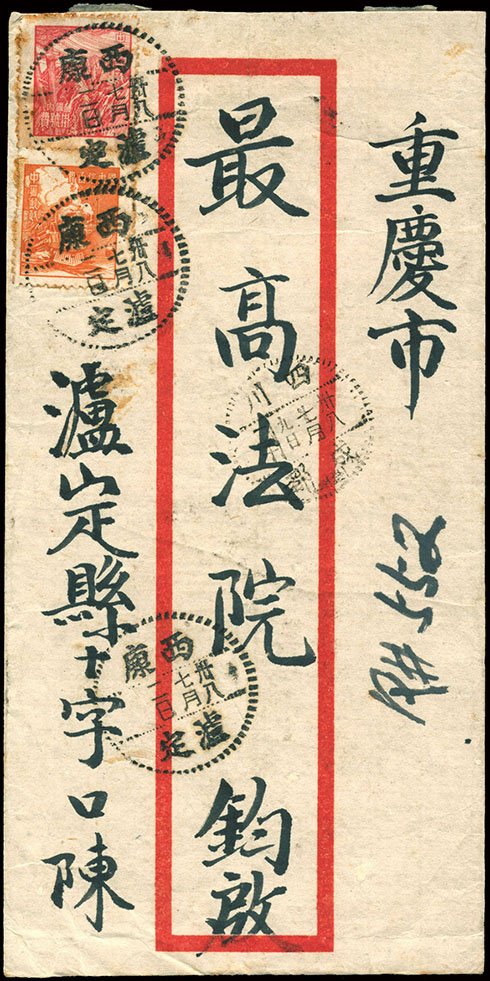 重慶市
最高法院 鈞啟
瀘定縣十字口陳
552
西康
卅八
七月
瀘定
西康
卅八
七月
瀘定
西川
卅八
七月
西康
卅八
七月
瀘定